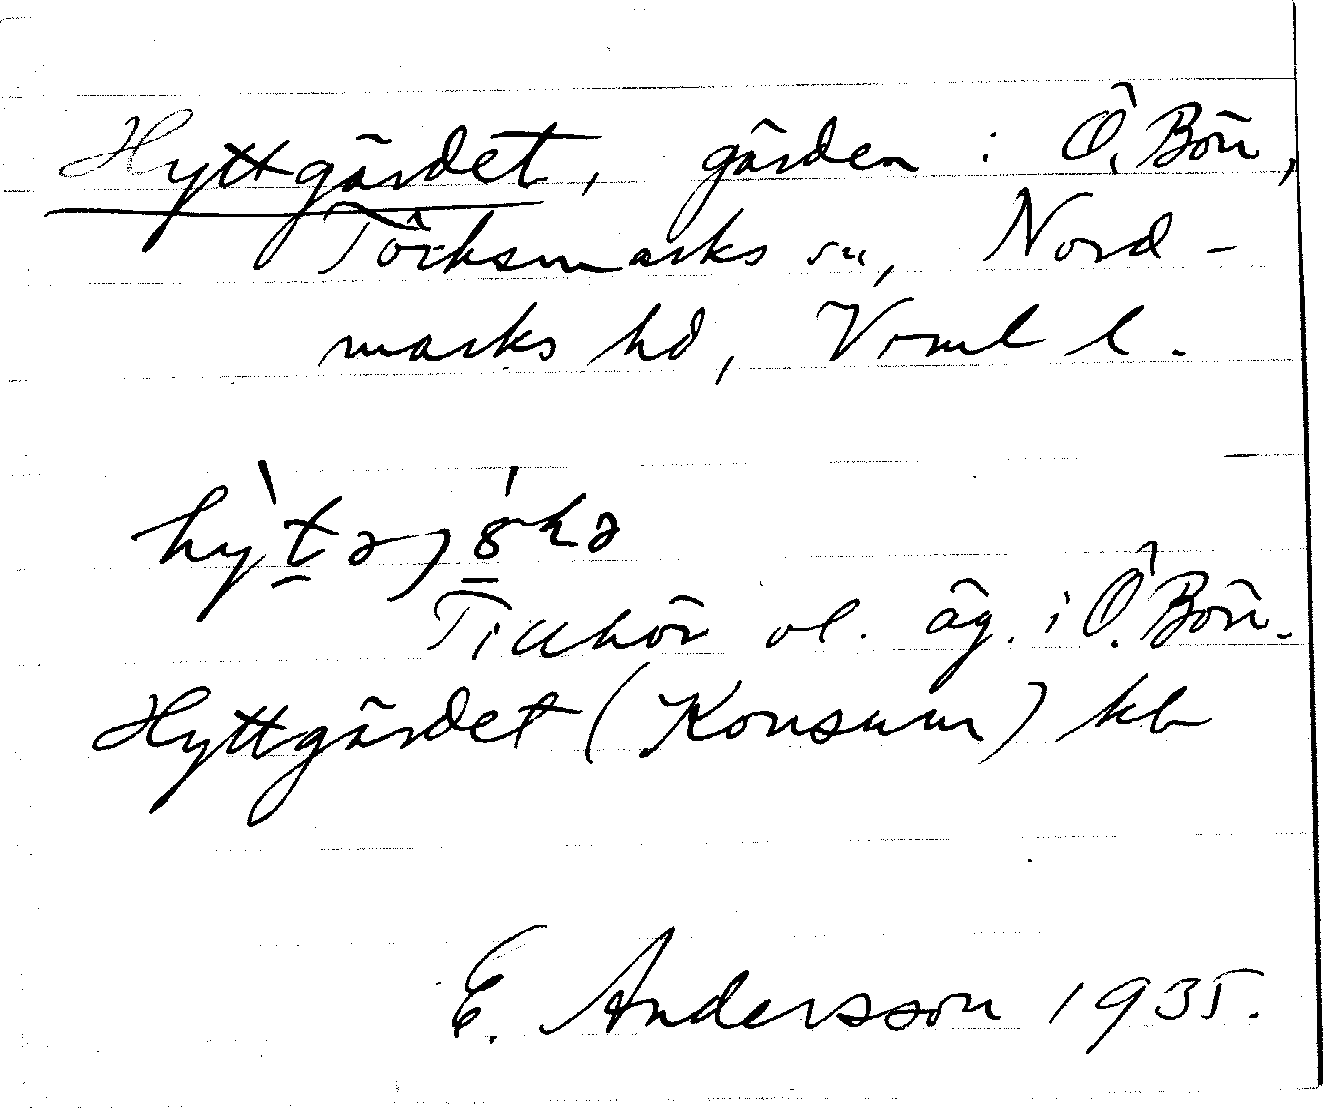 Hyttgärdet, gården i Ö. Bön,
Töcksmarks sn, Nord-
marks hd, Vrml l.
Tillhör ol. äg. i Ö. Bön.
Hyttgärdet (Konsum) kb
E. Andersson 1935.